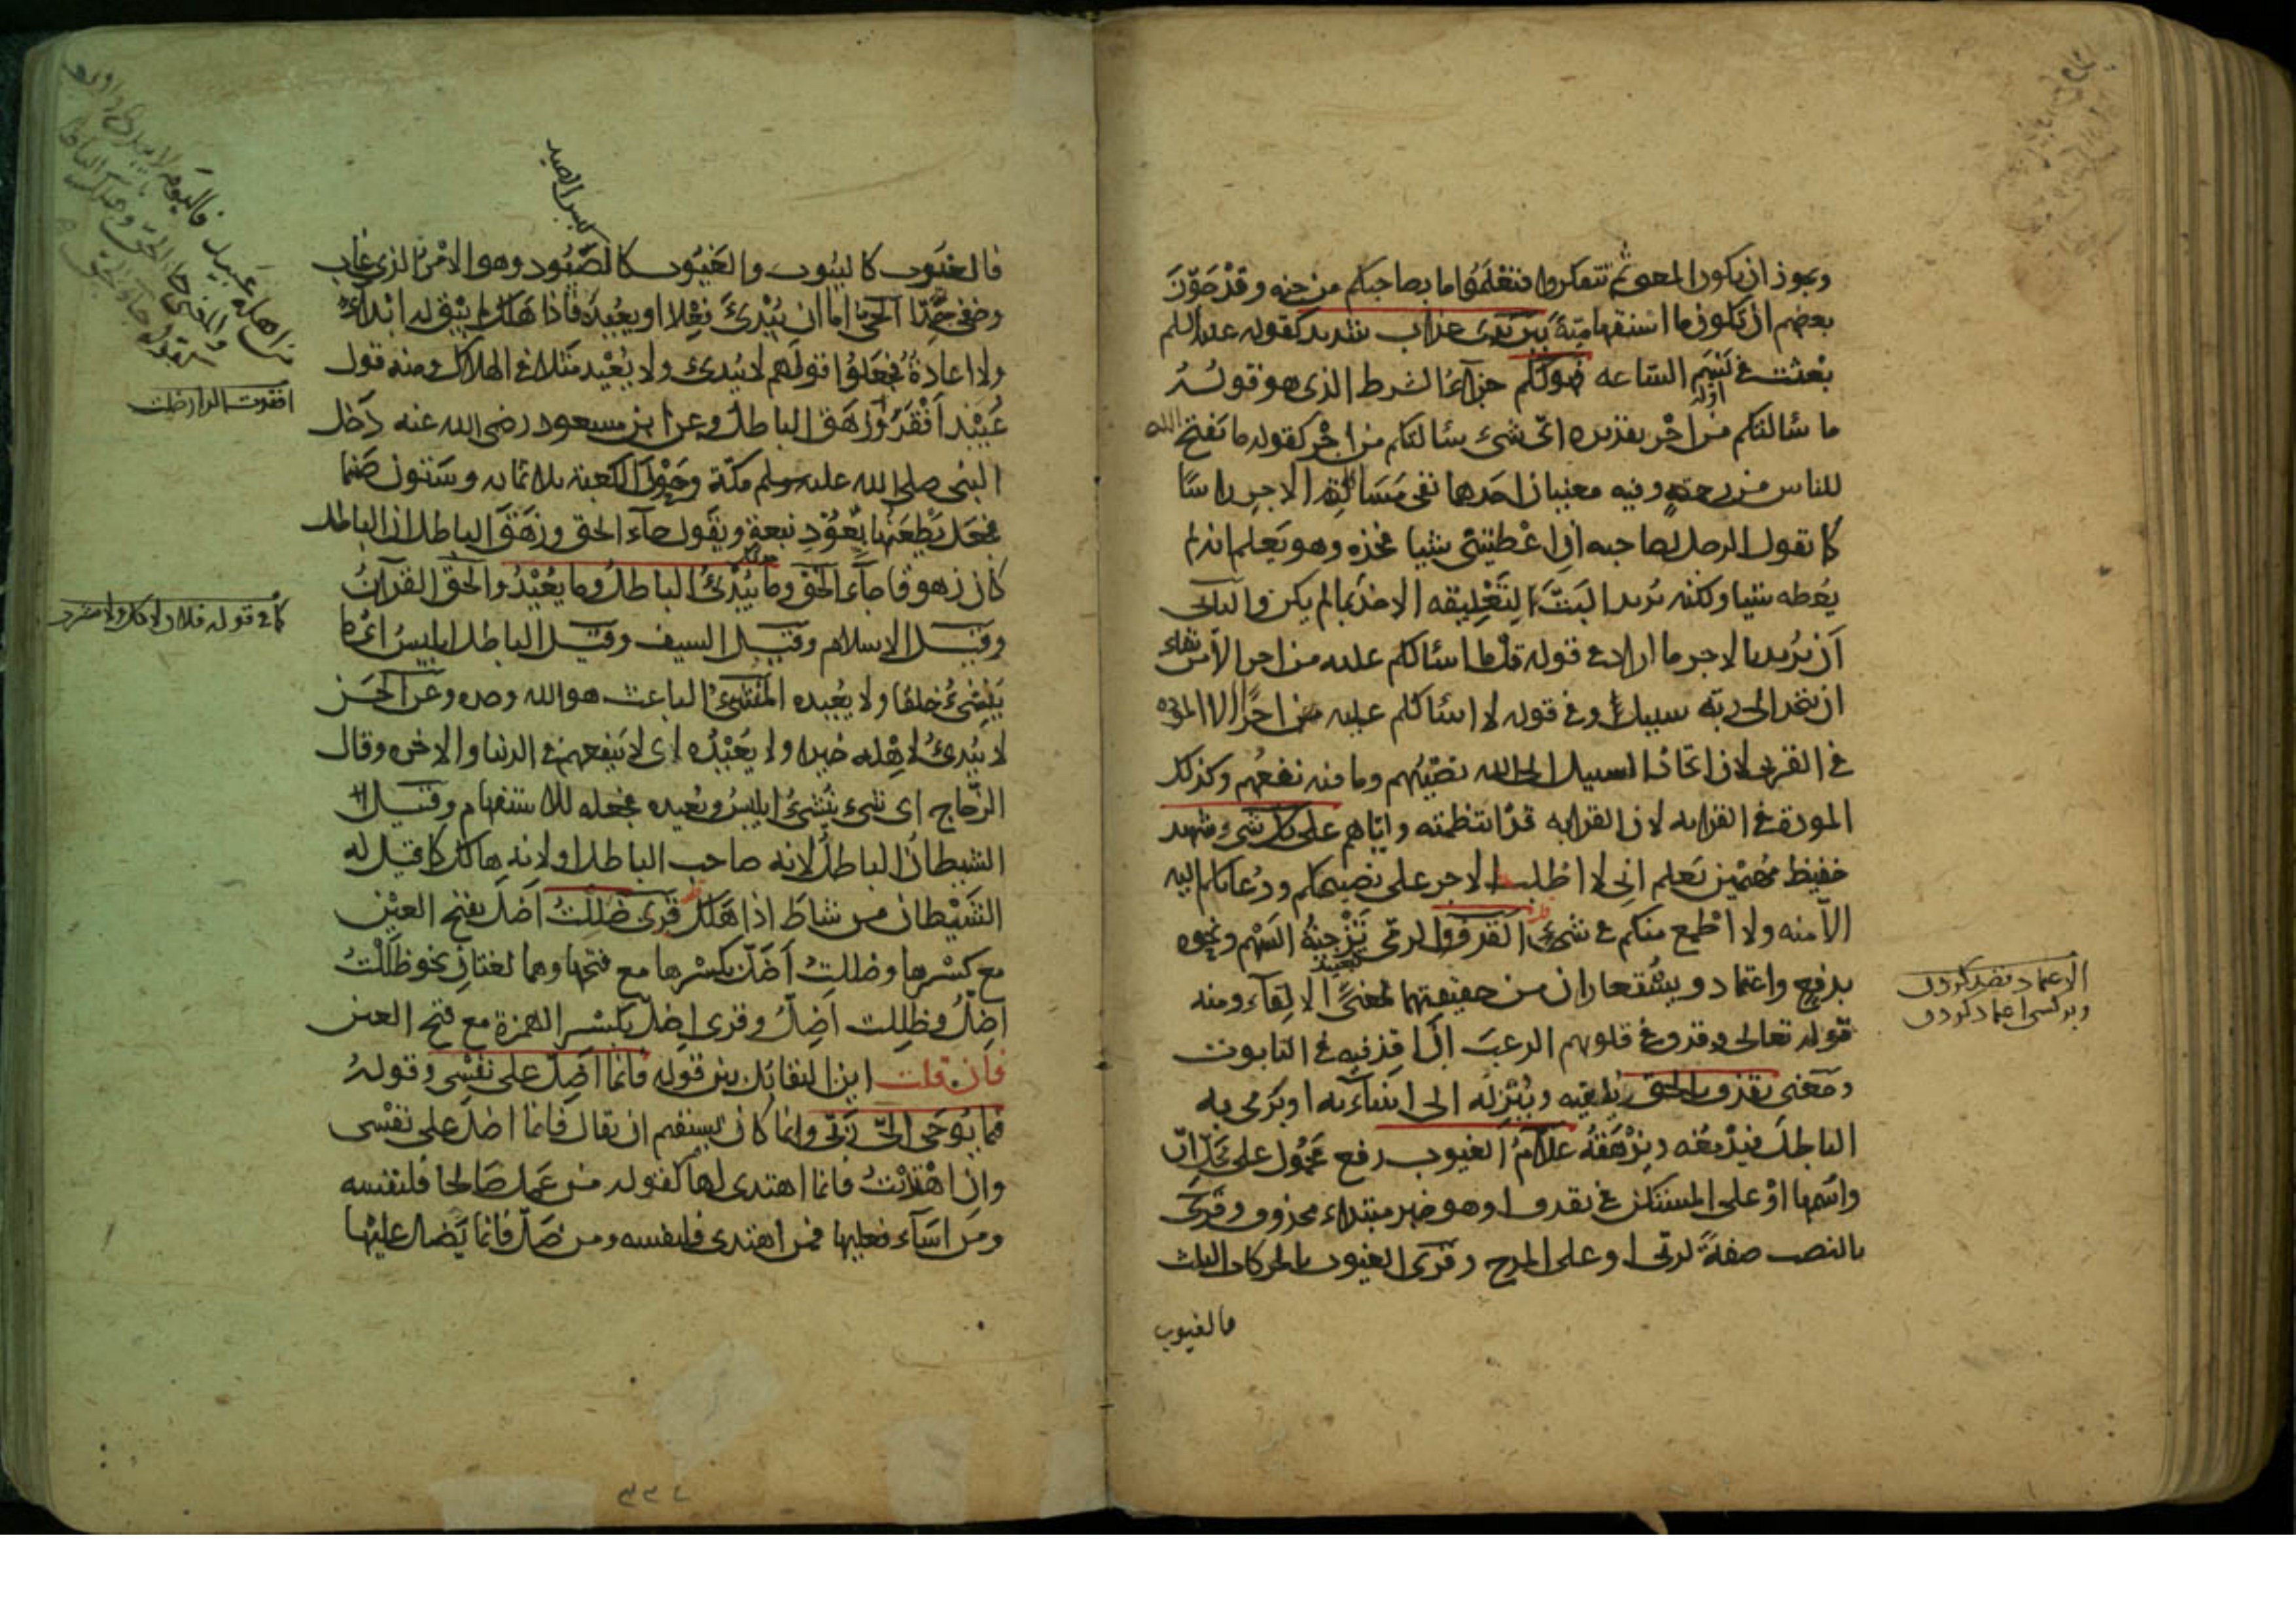 ويجوز ان يكون المعنى ثم تتفكروا فتعلموا ما بصاحبكم من جنه وقد جوّز
بعضهم ان تكون ما استفهامية بين يدى عذاب شديد كقوله عليه السلم
بعثت فى نسم الساعه فهولكم جزاء الشرط الذى هو قوله
ما سالتكم من اجر تقديره اىّ شىء سالتكم من اجر كقوله ما يفتح الله
للناس من رحمة وفيه معنيان احدهما نفى مسألة الاجر راسًا
كما تقول الرجل لصاحبه ان اعطيتنى شيا فخذه وهو يعلم انه لم
يعطه شيا ولكنه يريد البتّ لتعليقه الاخذ بما لم يكن والثانى
ان يريد بالاجر ما اراد فى قوله قل ما اسالكم عليه من اجر الا من شاء
ان يتخذ الى ربه سبيلا وفى قوله لا اسالكم عليه اجرا الا المودة
فى القربى لان اتخاذ السبيل الى الله نصيبهم وما فيه نفعهم وكذلك
المودة فى القرابه لان القرابه قد انتظمته واياهم على كل شىء شهيد
حفيظ مهيمن يعلم انى لا اطلب الاجر على نصيحتكم ودعائكم اليه
الا منه ولا اطمع منكم فى شىء القذف الرمى تزجية السهم ونحوه
بدفع واعتماد ويستعاران من حقيقتهما لمعنى الالقاء ومنه
قوله تعالى وقذف فى قلوبهم الرعب ان اقذفيه فى التابوت
ومعنى يقذف بالحق يلقيه وينزله الى انبيائه او يرمى به
الباطل فيدمغه ويزهقه علام الغيوب رفع محمول على محل ان
واسمها او على المستكن فى يقذف او هو خبر مبتداء محذوف وقرى
بالنصب صفة لربى او على المدح وقرى الغيوب بالحركات الثلث
فالغيوب
الاعتماد قصد كردن
وبر كسى اعتماد كردن
فالغيوب كالبيوت والغيوب كالصيود وهو الامر الذى غاب
وخفى جدّا الحى اما ان يبدئ فعلا او يعيده فاذا هلك لم يبق له ابداء
ولا اعادة فجعلوا قولهم لا يبدئ ولا يعيد مثلا فى الهلاك ومنه قول
عبيد اقفر وزهق الباطل وعن ابن مسعود رضى الله عنه دخل
النبى صلى الله عليه وسلم مكة وحول الكعبة ثلاثمايه وستون صنما
فجعل يطعنها بعود نبعة ويقول جاء الحق وزهق الباطل ان الباطل
كان زهوقا جاء الحق وما يبدئ الباطل وما يعيد والحق القرآن
وقيل الاسلام وقيل السيف وقيل الباطل ابليس اى ما
ينشئ خلقا ولا يعيده المنشئ الباعث هو الله وحده وعن الحسن
لا يبدئ لاهله خيرا ولا يعيده اى لا ينفعهم فى الدنيا والاخره وقال
الزجاج اى شىء ينشئ ابليس ويعيده فجعله للاستفهام وقيل
الشيطان الباطل لانه صاحب الباطل او لانه هالك كما قيل له
الشيطان من شاط اذا هلك قرى ضللت اضل بفتح العين
مع كسرها وضللت اضل بكسرها مع فتحها وهما لغتان نحو ظللت
اظل وظللت اظل وقرى اضل بكسر الهمزة مع فتح العين
فان قلت اين التقابل بين قوله فانما اضل على نفسى وقوله
فما يوحى الىّ ربى وانما كان يستقيم ان يقال فانما اضل على نفسى
وان اهتديت فانما اهتدى لها كقوله من عمل صالحا فلنفسه
ومن اساء فعليها فمن اهتدى فلنفسه ومن ضل فانما يضل عليها
من اهله عبيد فاليوم لا يبدى
كما فى قوله